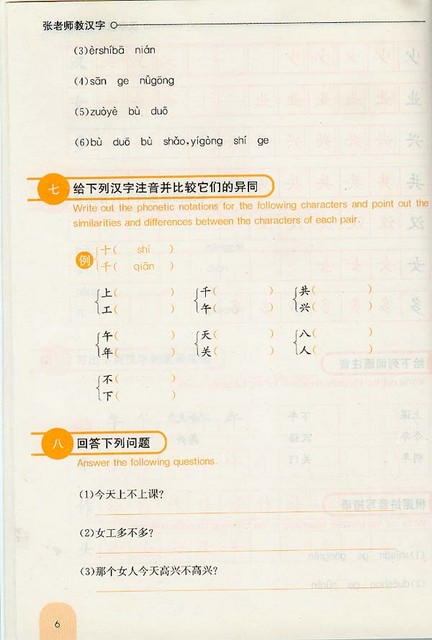 张老师教汉字
(3)èrshíbā nián
(4)sān ge nǚgōng
(5)zuòyè bù duō
(6)bù duō bù shǎo,yígòng shí ge
七 给下列汉字注音并比较它们的异同
Write out the phonetic notations for the following characters and point out the
similarities and differences between the characters of each pair.
例 十( shí )
千( qiān )
上( ) 千( ) 共( )
工( ) 午( ) 兴( )
午( ) 天( ) 八( )
年( ) 关( ) 人( )
不( )
下( )
八 回答下列问题
Answer the following questions.
(1)今天上不上课?
(2)女工多不多?
(3)那个女人今天高兴不高兴?
6